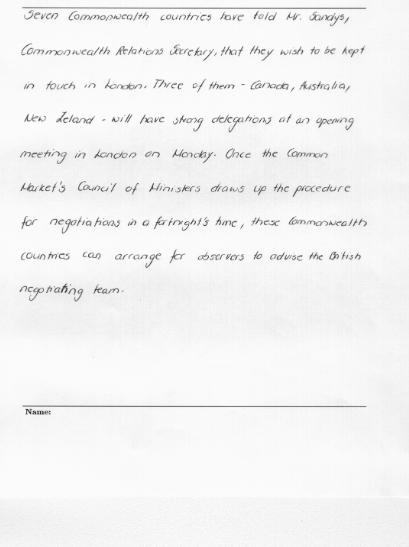 Seven Commonwealth countries have told Mr. Sandys,
Commonwealth Relations Secretary, that they wish to be kept
in touch in London. Three of them - Canada, Australia,
New Zeland - will have strong delegations at an opening
meeting in London on Monday. Once the Common
Market's Council of Ministers draws up the procedure
for negotiations in a fortnight's time, these Commonwealth
countries can arrange for observers to advise the British
negotiating team.
Name: